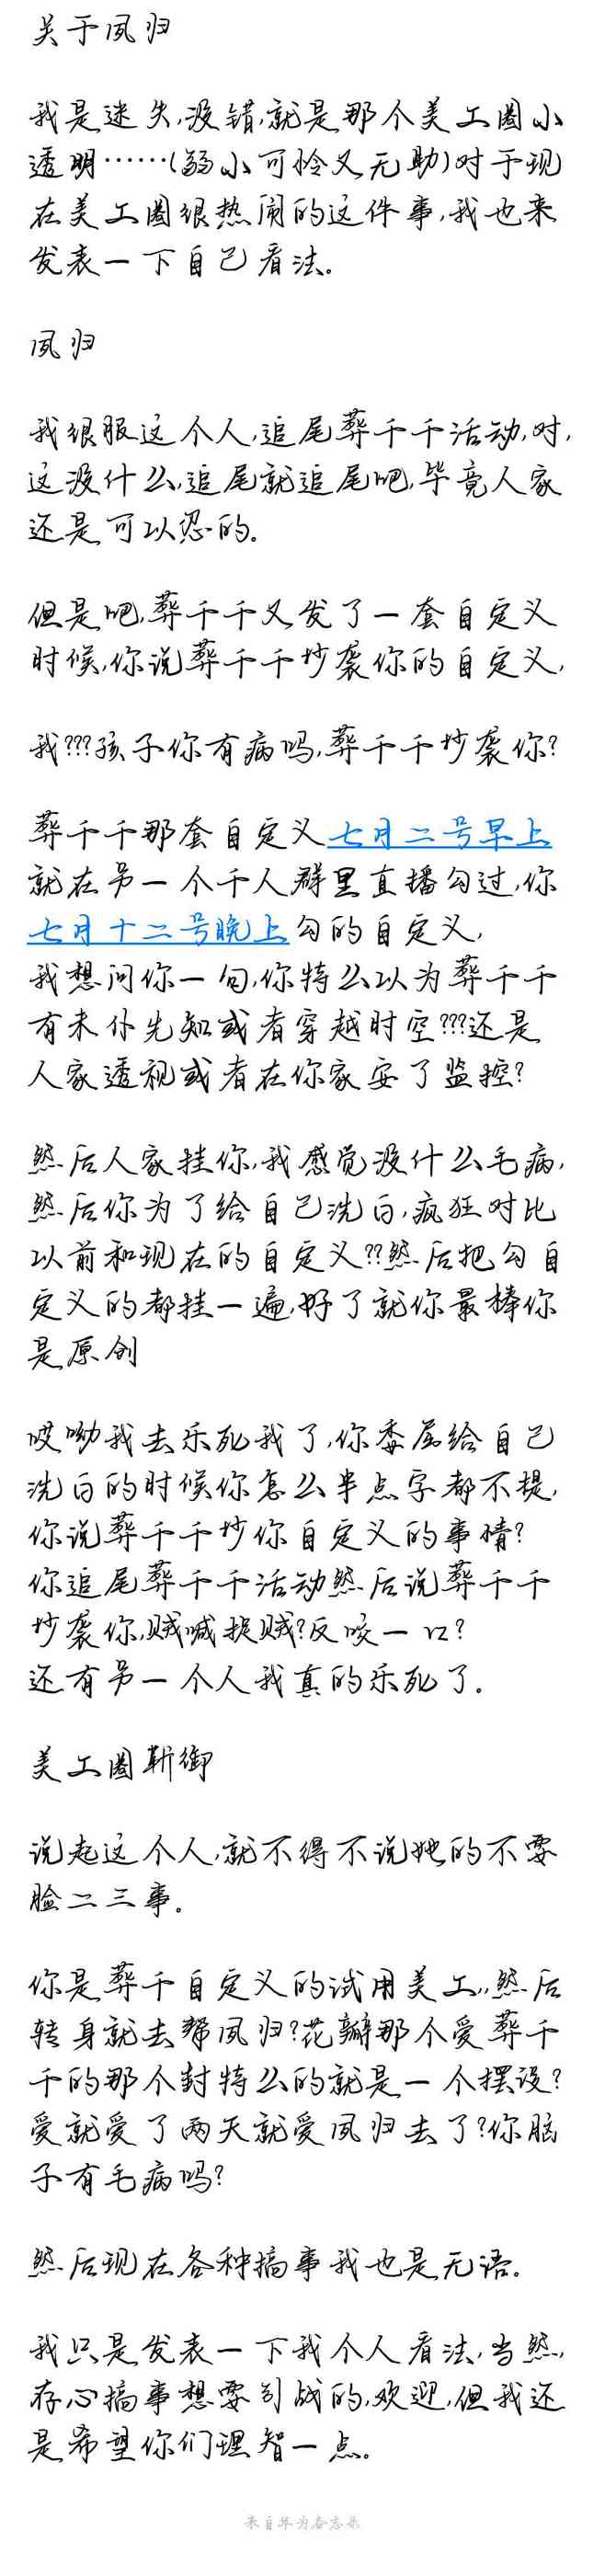 关于凤归
我是迷失,没错,就是那个美工圈小
透明……(弱小可怜又无助)对于现
在美工圈很热闹的这件事,我也来
发表一下自己看法。
凤归
我很服这个人,追尾葬千千活动,对,
这没什么,追尾就追尾吧,毕竟人家
还是可以忍的。
但是吧,葬千千又发了一套自定义
时候,你说葬千千抄袭你的自定义,
我???孩子你有病吗,葬千千抄袭你?
葬千千那套自定义七月二号早上
就在另一个千人群里直播勾过,你
七月十二号晚上勾的自定义,
我想问你一句,你特么以为葬千千
有未仆先知或者穿越时空???还是
人家透视或者在你家安了监控?
然后人家挂你,我感觉没什么毛病,
然后你为了给自己洗白,疯狂对比
以前和现在的自定义??然后把勾自
定义的都挂一遍,好了就你最棒你
是原创
哎呦我去乐死我了,你委屈给自己
洗白的时候你怎么半点字都不提,
你说葬千千抄你自定义的事情?
你追尾葬千千活动然后说葬千千
抄袭你,贼喊捉贼?反咬一口?
还有另一个人我真的乐死了。
美工圈靳御
说起这个人,就不得不说她的不要
脸二三事。
你是葬千自定义的试用美工,,然后
转身就去帮凤归?花瓣那个爱葬千
千的那个封特么的就是一个摆设?
爱就爱了两天就爱凤归去了?你脑
子有毛病吗?
然后现在各种搞事我也是无语。
我只是发表一下我个人看法,当然,
存心搞事想要引战的,欢迎,但我还
是希望你们理智一点。
来自华为备忘录